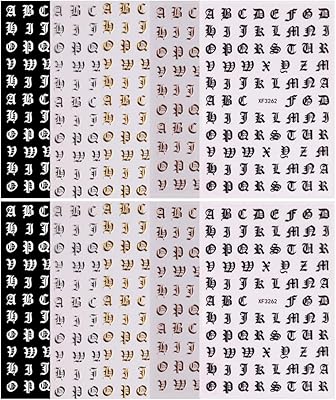 A B C A B C A B C A B C A B C D E F G D
H I J H I J H I J H I J H I J K L M N I
O P Q O P Q O P Q O P Q O P Q R S T U R
V W W V W W V W W V W W V W W X Y Z M
H I J H I J H I J H I J H I J K L M N A
A B C A B C A B C A B C A B C XF3262 F G D
H I J H I J H I J H I J H I J K L M N I
O P Q O P Q O P Q O P Q O P Q R S T U R
V W W V W W V W W V W W V W W X Y Z M
H I J H I J H I J H I J H I J K L M N A
O P Q O P Q O P Q O P Q R S T U R
A B C A B C A B C A B C A B C D E F G D
H I J H I J H I J H I J H I J K L M N I
O P Q O P Q O P Q O P Q O P Q R S T U R
V W W V W W V W W V W W V W W X Y Z M
H I J H I J H I J H I J H I J K L M N A
A B C A B C A B C A B C A B C XF3262 F G D
H I J H I J H I J H I J H I J K L M N I
O P Q O P Q O P Q O P Q O P Q R S T U R
V W W V W W V W W V W W V W W X Y Z M
H I J H I J H I J H I J H I J K L M N A
O P Q O P Q O P Q O P Q R S T U R